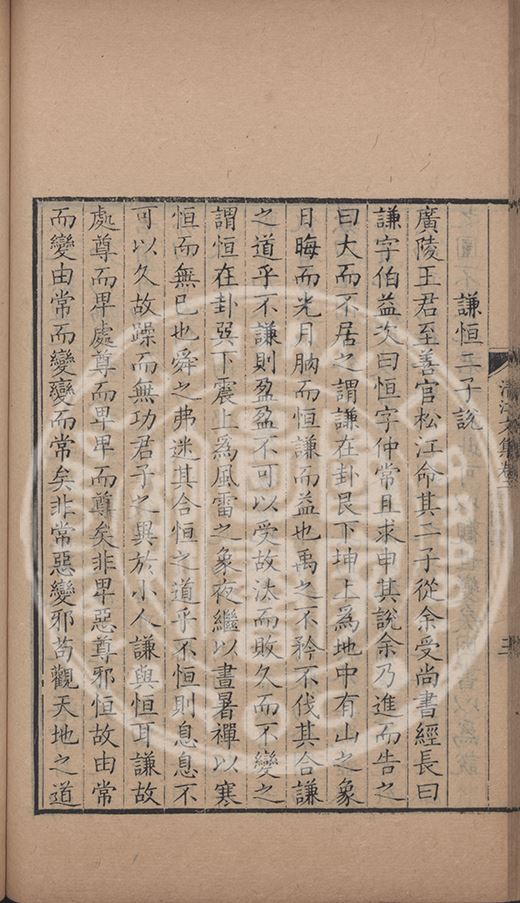 謙恒二子說
廣陵王君至善官松江命其二子從余受尚書經長曰
謙字伯益次曰恒字仲常且求申其說余乃進而告之
曰大而不居之謂謙在卦艮下坤上爲地中有山之象
日晦而光月朒而恒謙而益也禹之不矜不伐其合謙
之道乎不謙則盈盈不可以受故汰而敗久而不變之
謂恒在卦巽下震上爲風雷之象夜繼以晝暑禪以寒
恒而無已也舜之弗迷其合恒之道乎不恒則息息不
可以久故躁而無功君子之異於小人謙與恒耳謙故
處尊而卑處尊而卑卑而尊矣非卑惡尊邪恒故由常
而變由常而變變而常矣非常惡變邪苟觀天地之道
清江文集卷
三